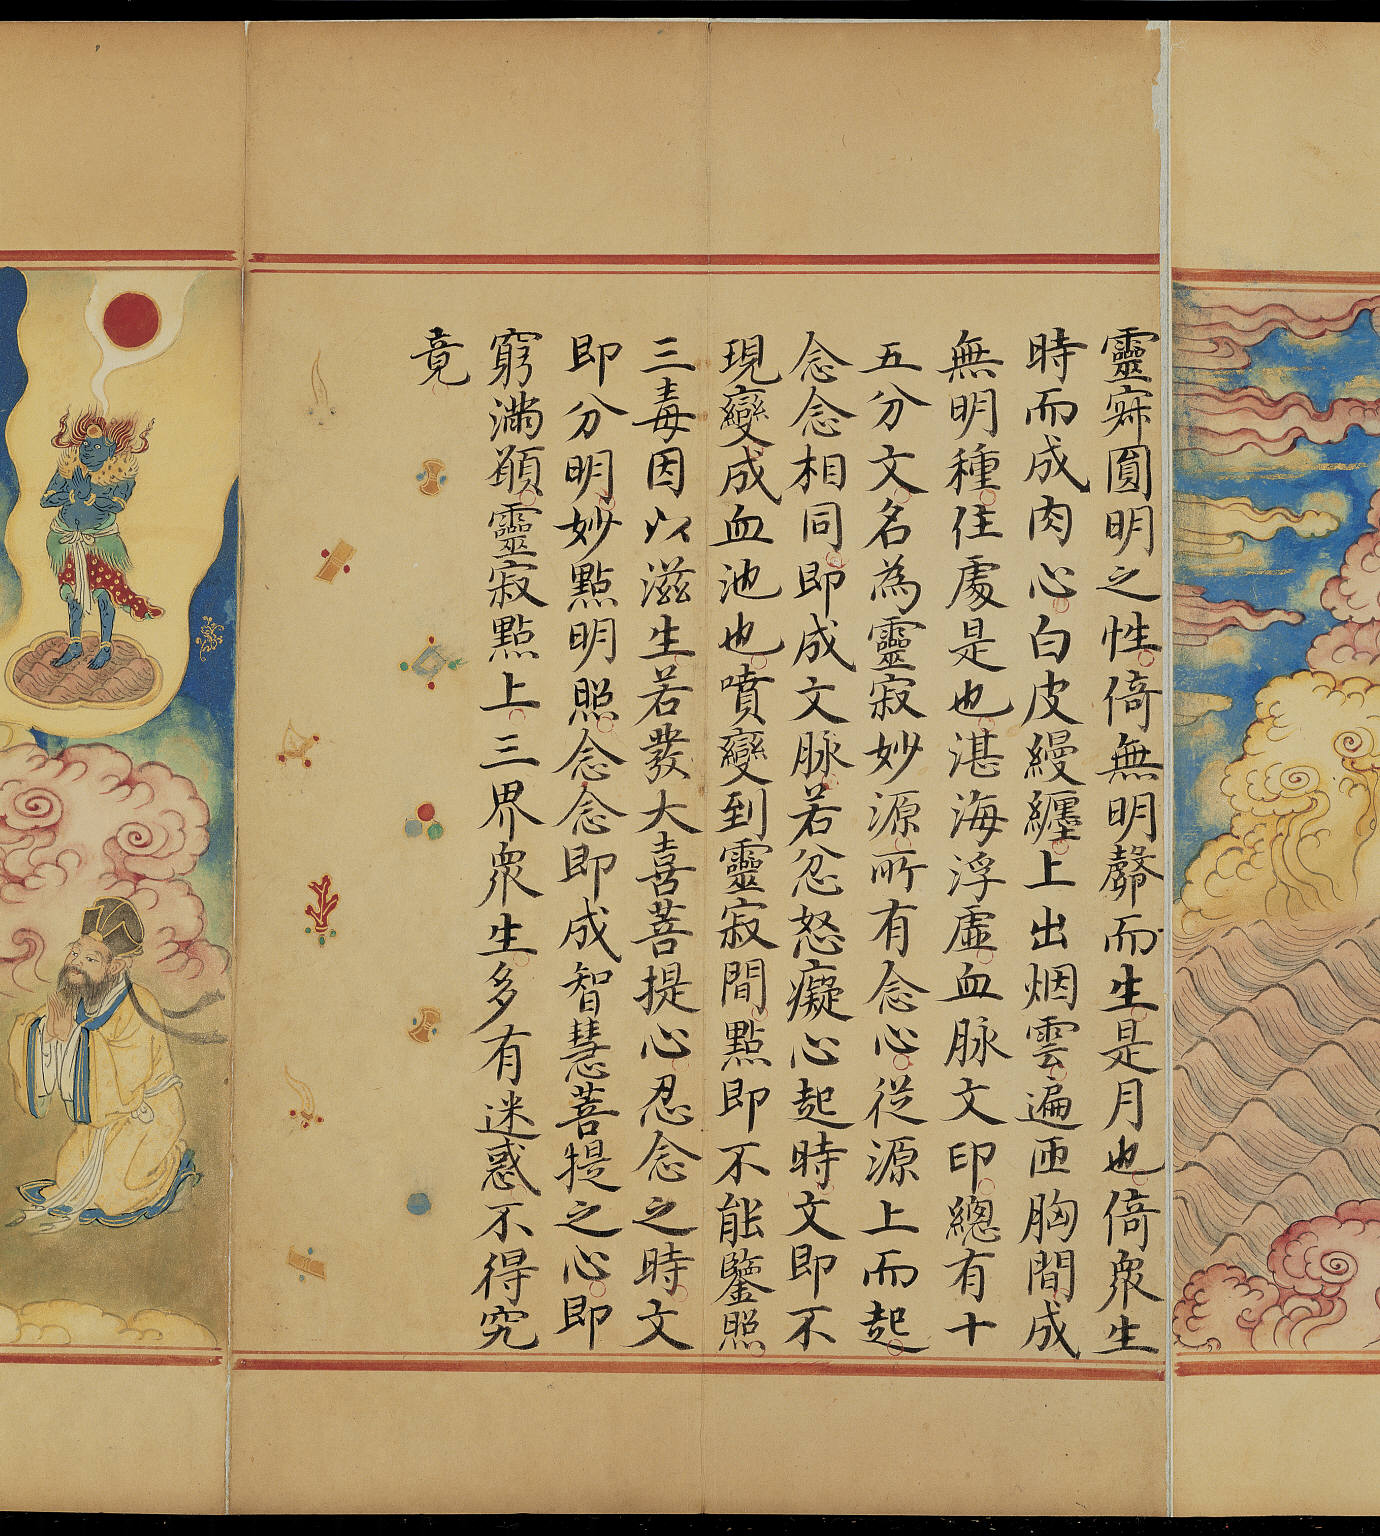 靈寐圓明之性倚無明罄而生是月也倚衆生
時而成肉心白皮縵纏上出烟雲遍匝胸間成
無明種住處是也湛海浮虛血脉文印總有十
五分文名為靈寂妙源所有念心從源上而起
念念相同即成文脉若忿怒癡心起時文即不
現變成血池也噴變到靈寂間點即不能鑒照
三毒因以滋生若發大喜菩提心忍念之時文
即分明妙點明照念念即成智慧菩提之心即
窮滿願靈寂點上三界衆生多有迷惑不得究
竟